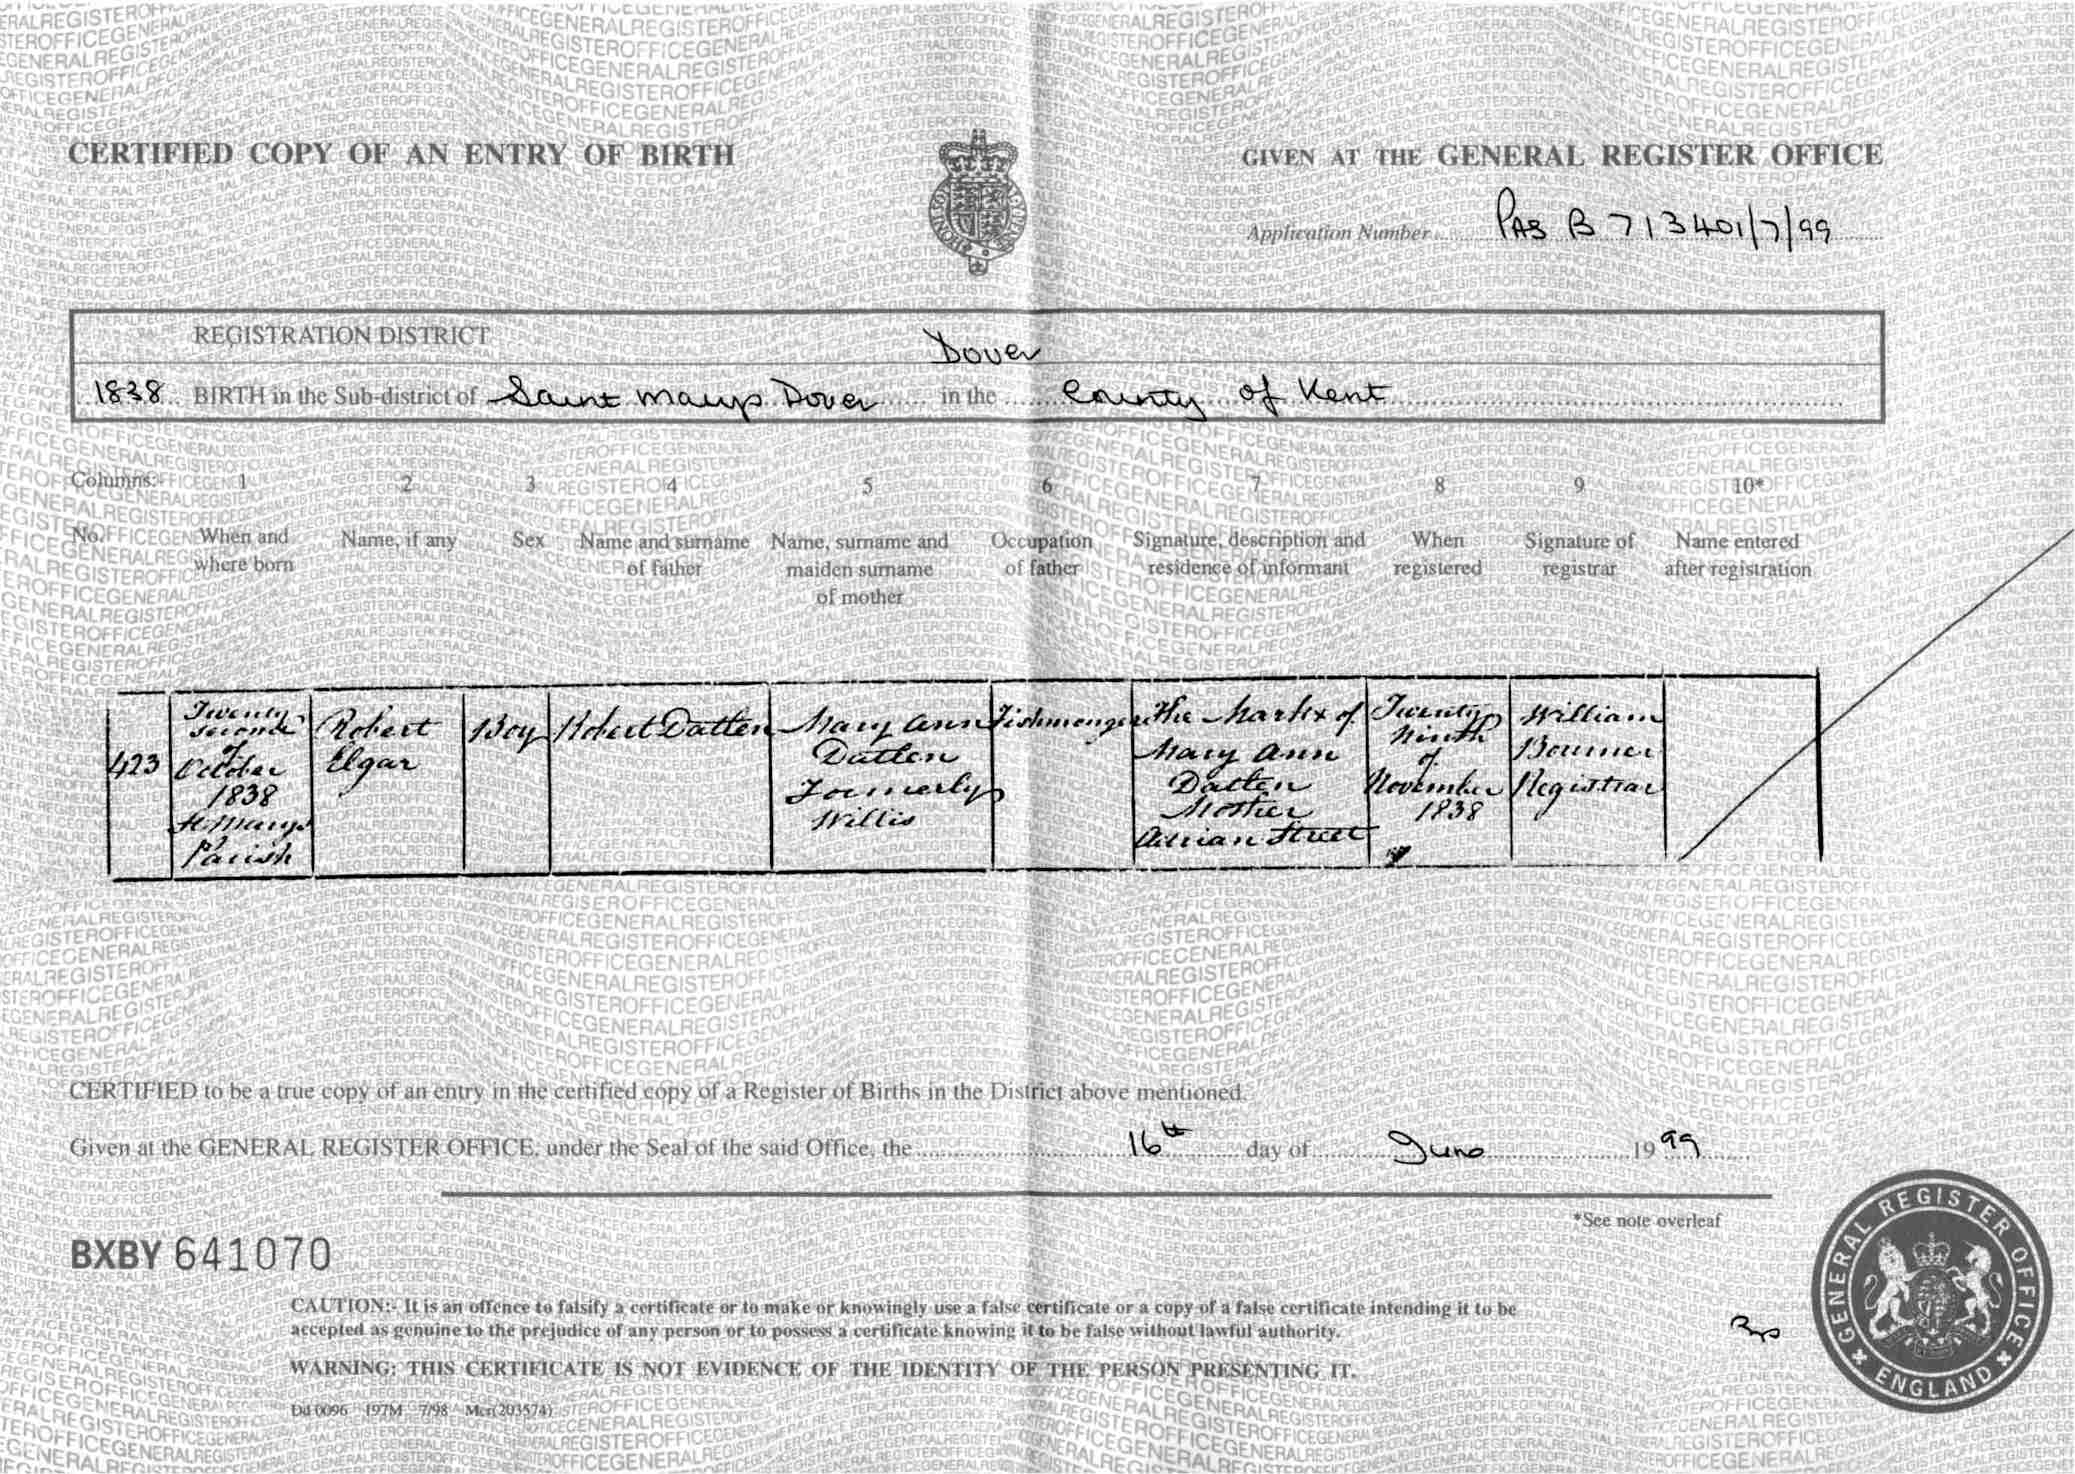 CERTIFIED COPY OF AN ENTRY OF BIRTH
GIVEN AT THE GENERAL REGISTER OFFICE
Application Number PAS B 713401/7/99
REGISTRATION DISTRICT Dover
1838 BIRTH in the Sub-district of Saint Marys Dover in the County of Kent
Columns:- 1 2 3 4 5 6 7 8 9 10*
No. When and where born
Name, if any
Sex
Name and surname of father
Name, surname and maiden surname of mother
Occupation of father
Signature, description and residence of informant
When registered
Signature of registrar
Name entered after registration
423
Twenty
second
of
October
1838
St Marys
Parish
Robert
Elgar
Boy
Robert Datlen
Mary Ann
Datlen
Formerly
Willis
Fishmonger
The Mark x of
Mary Ann
Datlen
Mother
Adrian Street
Twenty
Ninth
of
November
1838
William
Bourner
Registrar
CERTIFIED to be a true copy of an entry in the certified copy of a Register of Births in the District above mentioned.
Given at the GENERAL REGISTER OFFICE, under the Seal of the said Office, the 16th day of June 1999
*See note overleaf
BXBY 641070
CAUTION:- It is an offence to falsify a certificate or to make or knowingly use a false certificate or a copy of a false certificate intending it to be
accepted as genuine to the prejudice of any person or to possess a certificate knowing it to be false without lawful authority.
WARNING: THIS CERTIFICATE IS NOT EVIDENCE OF THE IDENTITY OF THE PERSON PRESENTING IT.
Dd 0096 197M 7/98 Mcr(203574)
GENERAL REGISTER OFFICE
ENGLAND